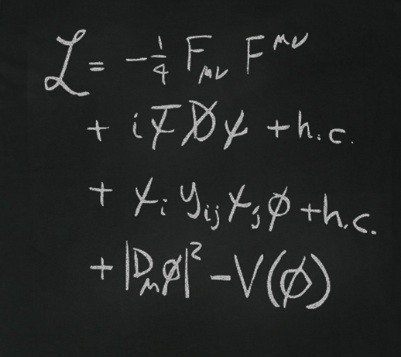 ℒ = -¼ F_μν F^μν
+ iψ̄D̸ψ + h.c.
+ ψ_i y_ij ψ_j ϕ + h.c.
+ |D_μ ϕ|² - V(ϕ)